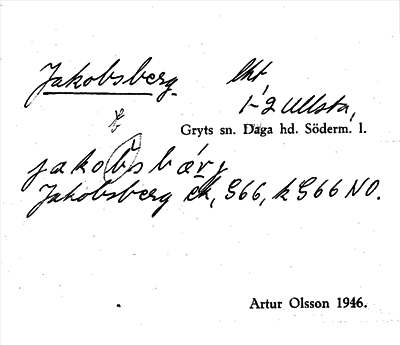 Jakobsberg. lht
1-2 Ullsta,
Gryts sn. Daga hd. Söderm. l.
jakobsbærj
Jakobsberg ek, G66, k G66 NO.
Artur Olsson 1946.